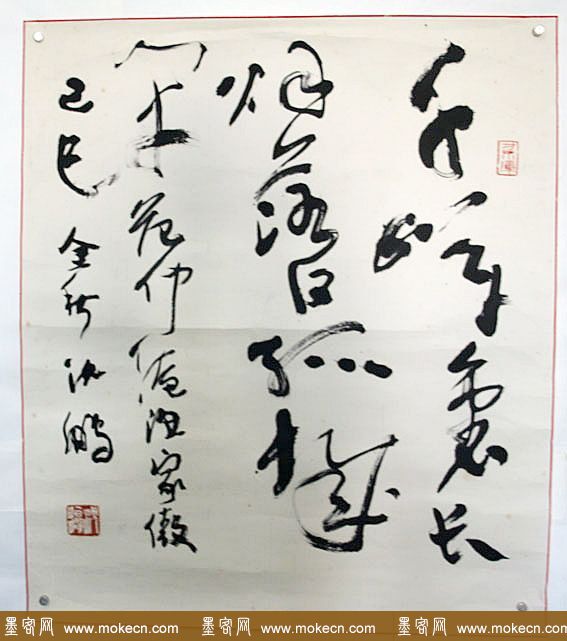 千嶂裏长
烟落日孤城
闭 范仲淹渔家傲
己巳 金秋 沈鹏
墨客网 www.mokecn.com 墨客网 www.mokecn.com 墨客网 www.mokecn.com